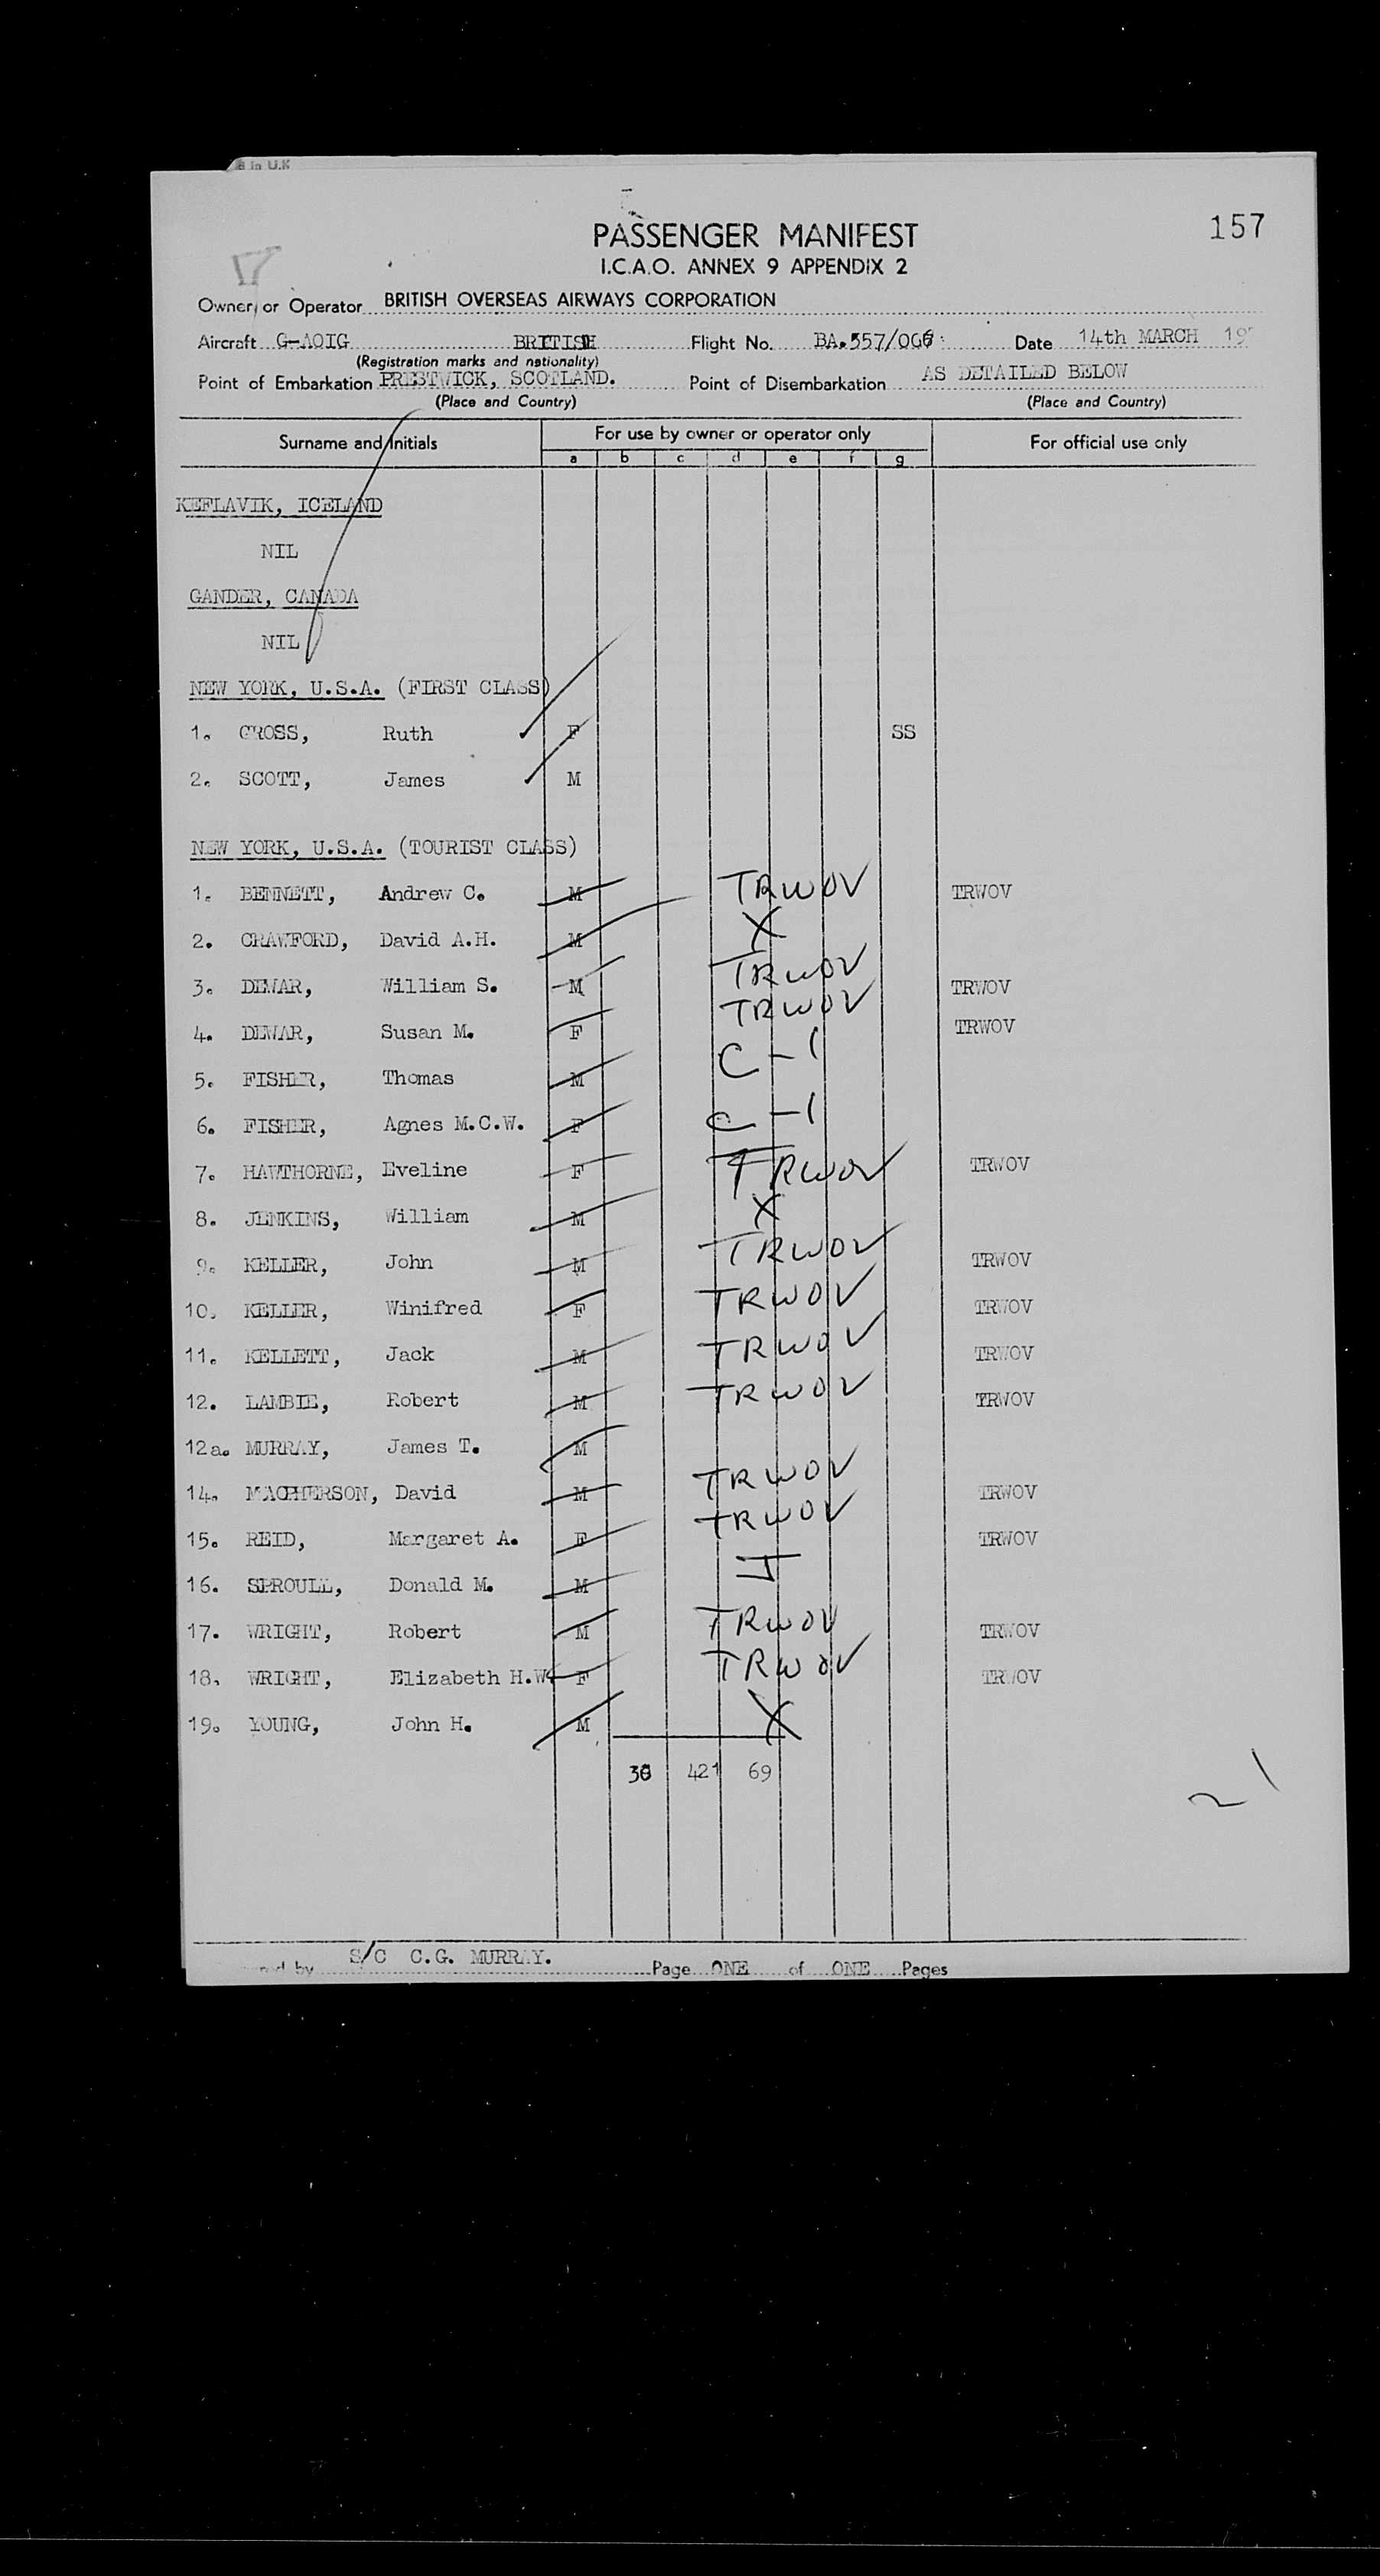 d in U.K
157
PASSENGER MANIFEST
I.C.A.O. ANNEX 9 APPENDIX 2
Owner or Operator BRITISH OVERSEAS AIRWAYS CORPORATION
Aircraft G-AOIG BRITISH Flight No. BA.557/006 Date 14th MARCH 19
(Registration marks and nationality)
Point of Embarkation PRESTWICK, SCOTLAND. Point of Disembarkation AS DETAILED BELOW
(Place and Country) (Place and Country)
Surname and Initials For use by owner or operator only For official use only
a b c d e f g
KEFLAVIK, ICELAND
NIL
GANDER, CANADA
NIL
NEW YORK, U.S.A. (FIRST CLASS)
1. GROSS, Ruth F SS
2. SCOTT, James M
NEW YORK, U.S.A. (TOURIST CLASS)
1. BENNETT, Andrew C. M TRWOV TRWOV
2. CRAWFORD, David A.H. M X
3. DEWAR, William S. M TRWOV TRWOV
4. DEWAR, Susan M. F TRWOV TRWOV
5. FISHER, Thomas M C-1
6. FISHER, Agnes M.C.W. F C-1
7. HAWTHORNE, Eveline F TRWOV TRWOV
8. JENKINS, William M X
9. KELLER, John M TRWOV TRWOV
10. KELLER, Winifred F TRWOV TRWOV
11. KELLETT, Jack M TRWOV TRWOV
12. LAMBIE, Robert M TRWOV TRWOV
12a. MURRAY, James T. M
14. MACPHERSON, David M TRWOV TRWOV
15. REID, Margaret A. F TRWOV TRWOV
16. SPROULL, Donald M. M J
17. WRIGHT, Robert M TRWOV TRWOV
18. WRIGHT, Elizabeth H.W. F TRWOV TRWOV
19. YOUNG, John H. M X
421 69
21
by S/C C.G. MURRAY. Page ONE of ONE Pages